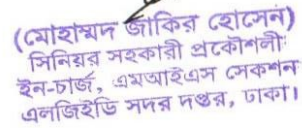 (মোহাম্মদ জাকির হোসেন)
সিনিয়র সহকারী প্রকৌশলী
ইন-চার্জ, এমআইএস সেকশন
এলজিইডি সদর দপ্তর, ঢাকা।